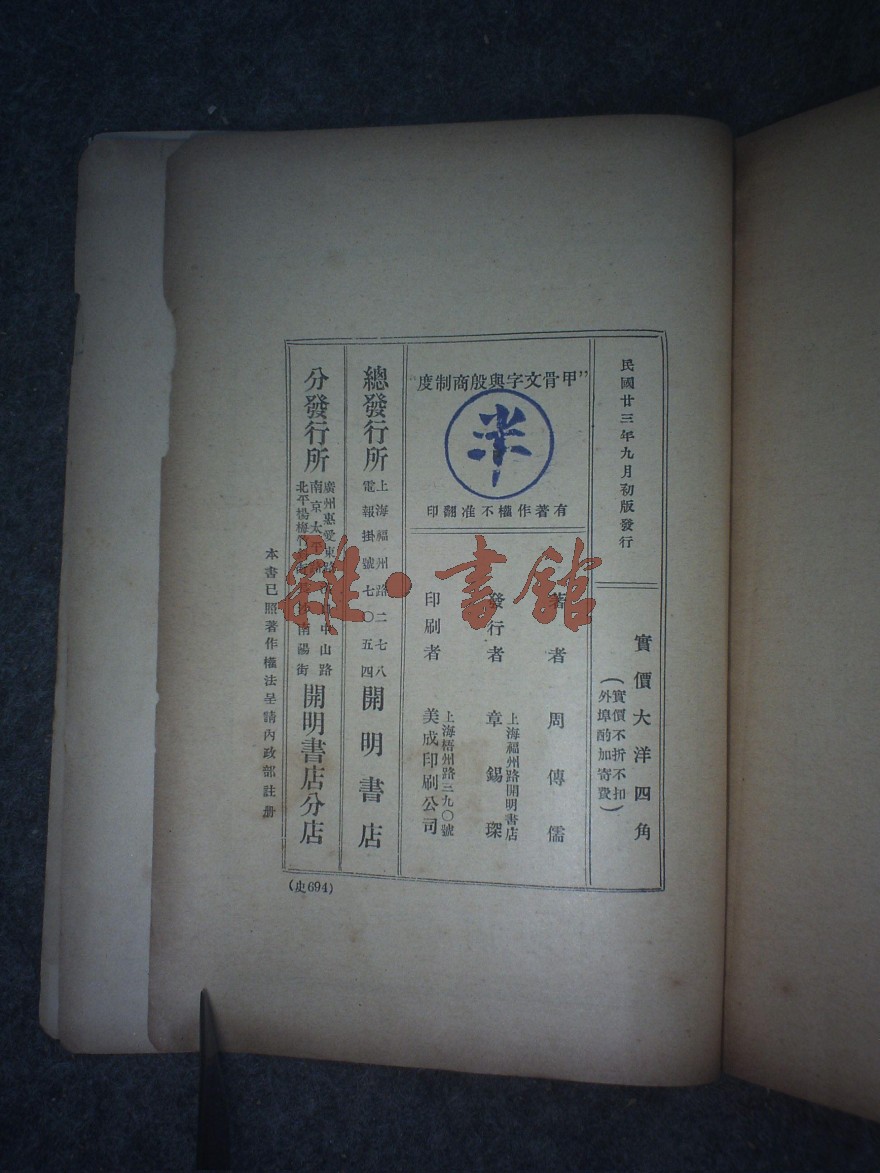 民國廿三年九月初版發行
實價大洋四角
（實價不折不扣
外埠酌加寄費）
"甲骨文字與殷商制度"
有著作權不准翻印
著者 周傳儒
發行者 上海福州路開明書店
章錫琛
印刷者 上海梧州路三九〇號
美成印刷公司
總發行所 上海福州路二七八
電報掛號七〇五四
開明書店
分發行所 廣州惠愛東路
中山路
南京太平
南陽街
北平楊梅竹
開明書店分店
本書已照著作權法呈請內政部註册
(史694)
雜·書館